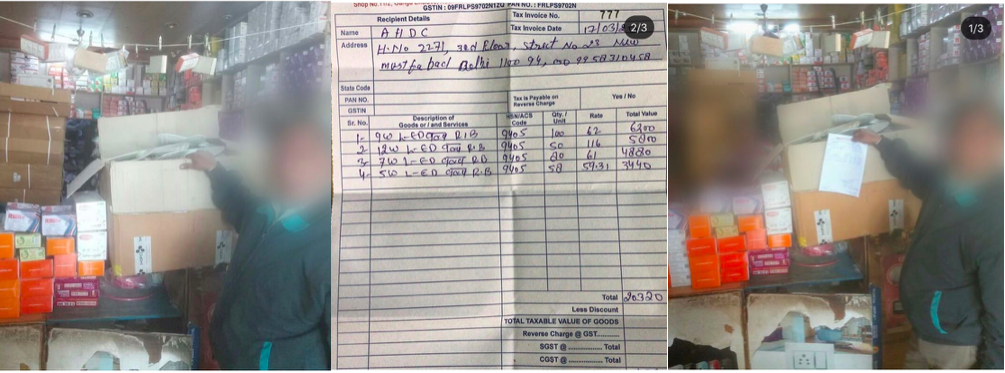 GSTIN : 09FRLPS9702N1ZQ PAN NO. : FRLPS9702N
Recipient Details
Tax Invoice No. 777
Tax Invoice Date 17/03/
2/3
1/3
Name A H D C
Address H.No 2271, 3rd Floor, Street No 23 New
mustfabad Delhi 110094, mo 9958710458
State Code
PAN NO.
GSTIN
Tax is Payable on
Reverse Charge
Yes / No
Sr. No. Description of Goods or / and Services HSN/ACS Code Qty./ Unit Rate Total Value
1. 9W LED 9405 100 62 6200
2. 12W LED 9405 50 116 5800
3. 7W LED 9405 80 61 4880
4. 5W LED 9405 58 59.31 3440
Total 20320
Less Discount
TOTAL TAXABLE VALUE OF GOODS
Reverse Charge @ GST
SGST @ Total
CGST @ Total